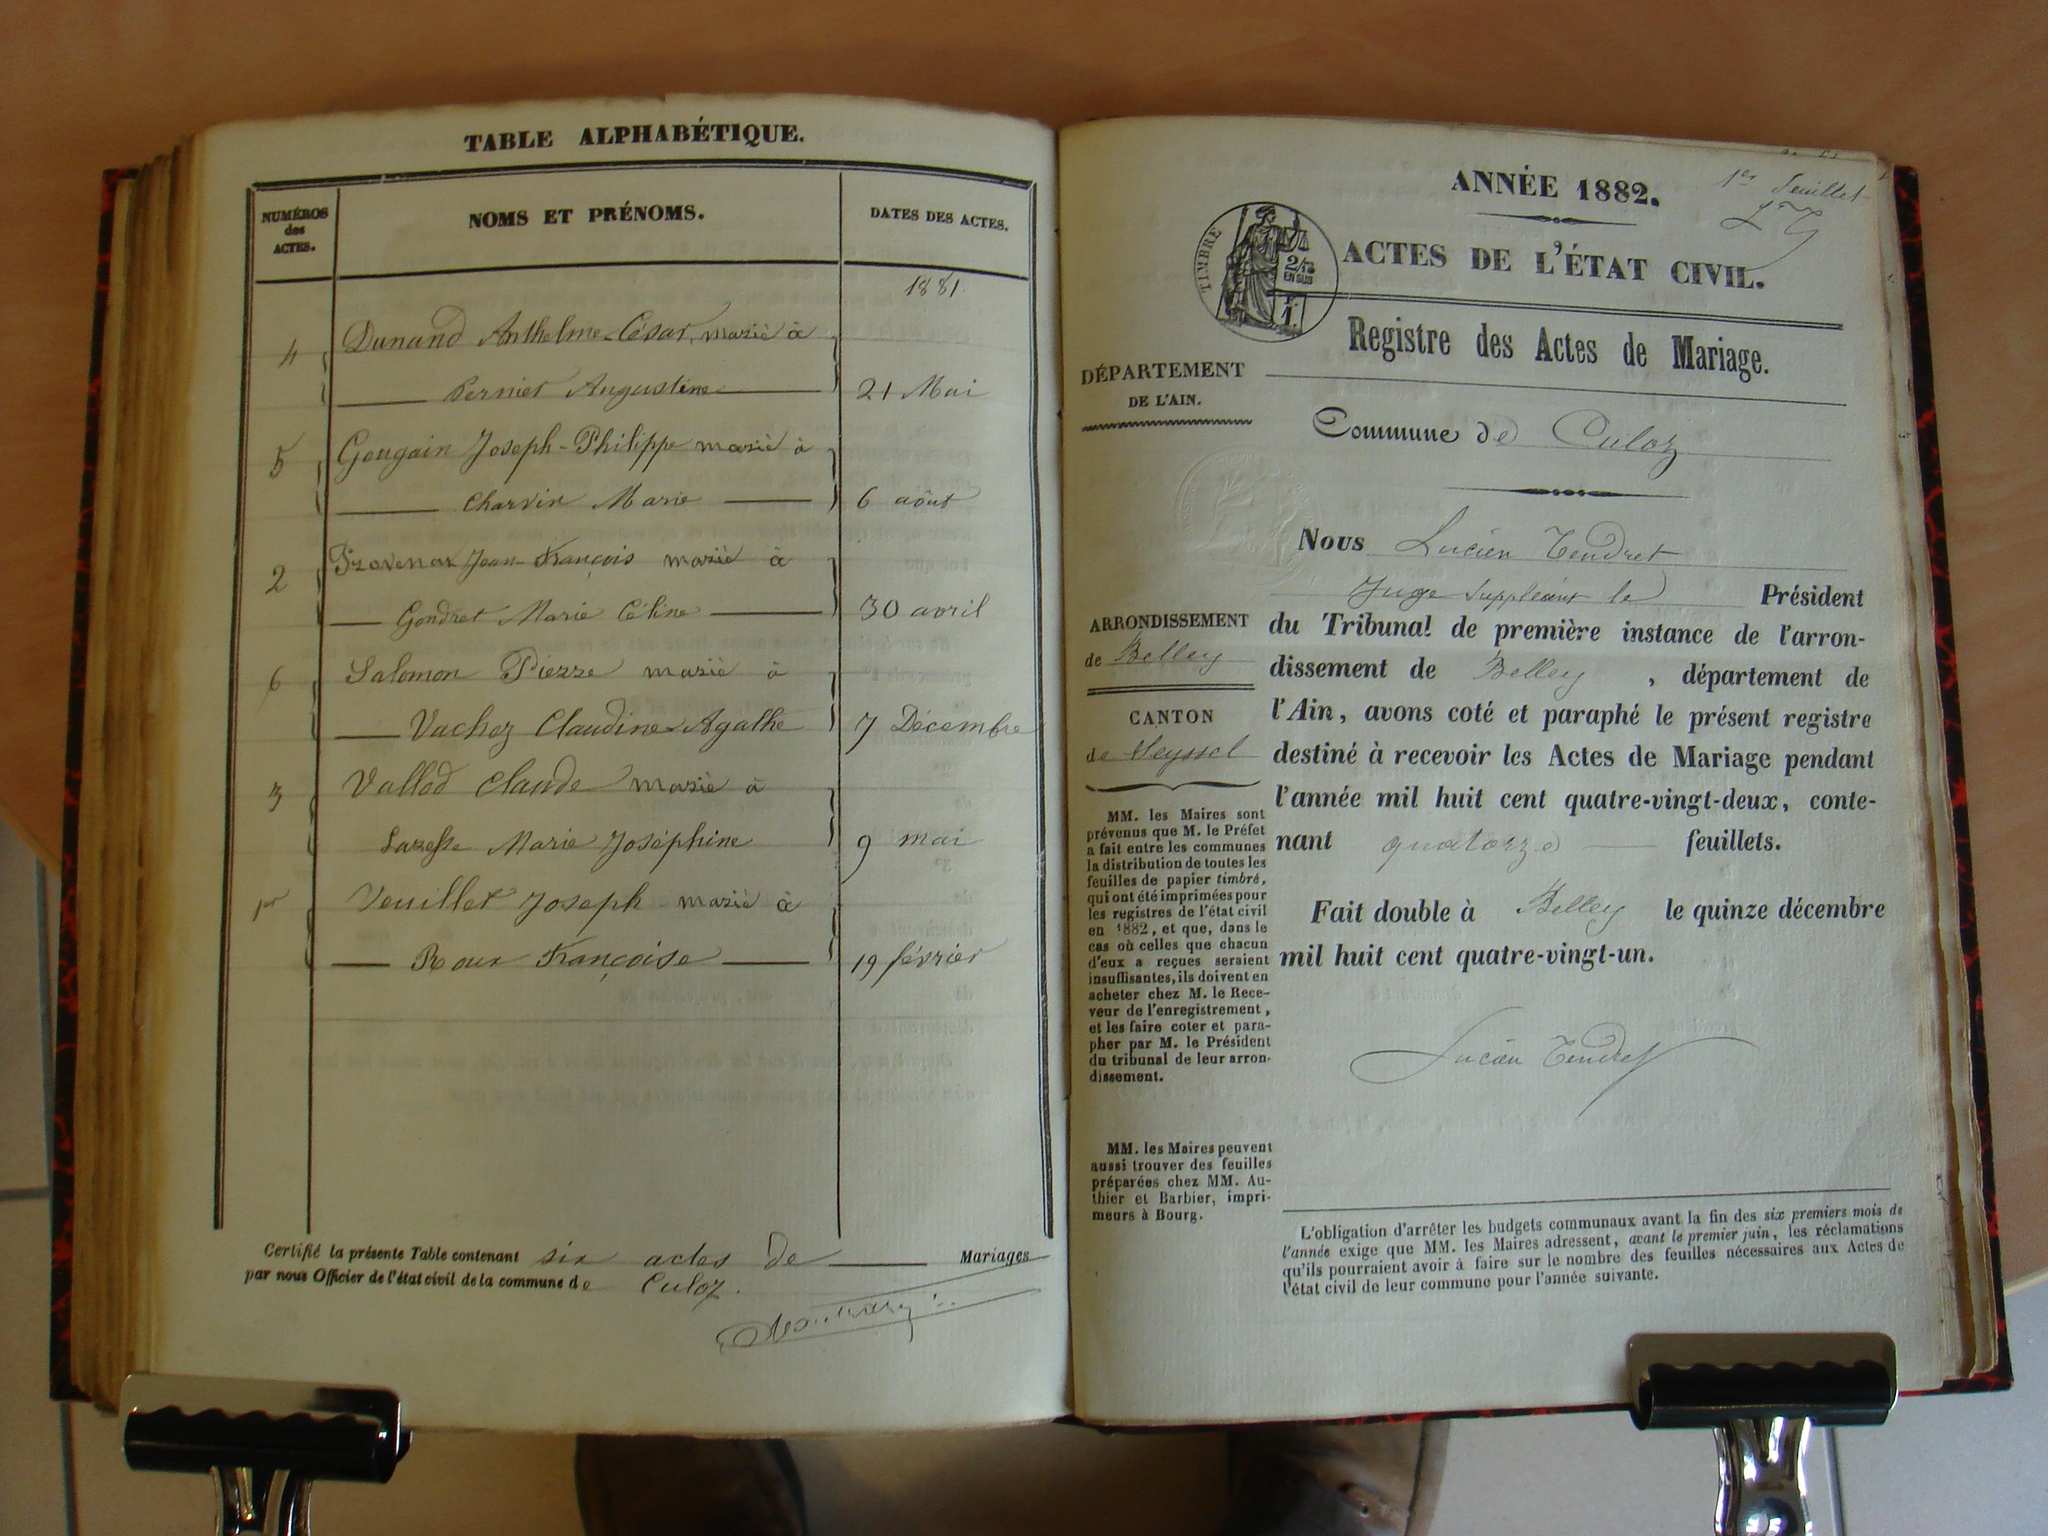 TABLE ALPHABÉTIQUE.
NUMÉROS des ACTES.
NOMS ET PRÉNOMS.
DATES DES ACTES.
1881.
4 Dunand Anthelme-César, marié à
Pernier Augustine 21 Mai
5 Gougain Joseph-Philippe marié à
Charvin Marie 6 août
2 Jean-François marié à
Gondret Marie Céline 30 avril
6 Salomon Pierre marié à
Vachez Claudine-Agathe 7 Décembre
3 Vallod Claude marié à
Marie Joséphine 9 mai
1er Veuillet Joseph marié à
Roux Françoise 19 février
Certifié la présente Table contenant six actes de Mariages
par nous Officier de l'état civil de la commune de Culoz.
1er feuillet
ANNÉE 1882.
TIMBRE
2/10
EN SUS
1F
ACTES DE L'ÉTAT CIVIL.
Registre des Actes de Mariage.
DÉPARTEMENT
DE L'AIN.
Commune de Culoz
ARRONDISSEMENT
de Belley
CANTON
de Seyssel
MM. les Maires sont
prévenus que M. le Préfet
a fait entre les communes
la distribution de toutes les
feuilles de papier timbré,
qui ont été imprimées pour
les registres de l'état civil
en 1882, et que, dans le
cas où celles que chacun
d'eux a reçues seraient
insuffisantes, ils doivent en
acheter chez M. le Rece-
veur de l'enregistrement,
et les faire coter et para-
pher par M. le Président
du tribunal de leur arron-
dissement.
MM. les Maires peuvent
aussi trouver des feuilles
préparées chez MM. Au-
thier et Barbier, impri-
meurs à Bourg.
Nous Lucien Tendret
Juge Suppléant le Président
du Tribunal de première instance de l'arron-
dissement de Belley, département de
l'Ain, avons coté et paraphé le présent registre
destiné à recevoir les Actes de Mariage pendant
l'année mil huit cent quatre-vingt-deux, conte-
nant quatorze feuillets.
Fait double à Belley le quinze décembre
mil huit cent quatre-vingt-un.
Lucien Tendret
L'obligation d'arrêter les budgets communaux avant la fin des six premiers mois de
l'année exige que MM. les Maires adressent, avant le premier juin, les réclamations
qu'ils pourraient avoir à faire sur le nombre des feuilles nécessaires aux Actes de
l'état civil de leur commune pour l'année suivante.